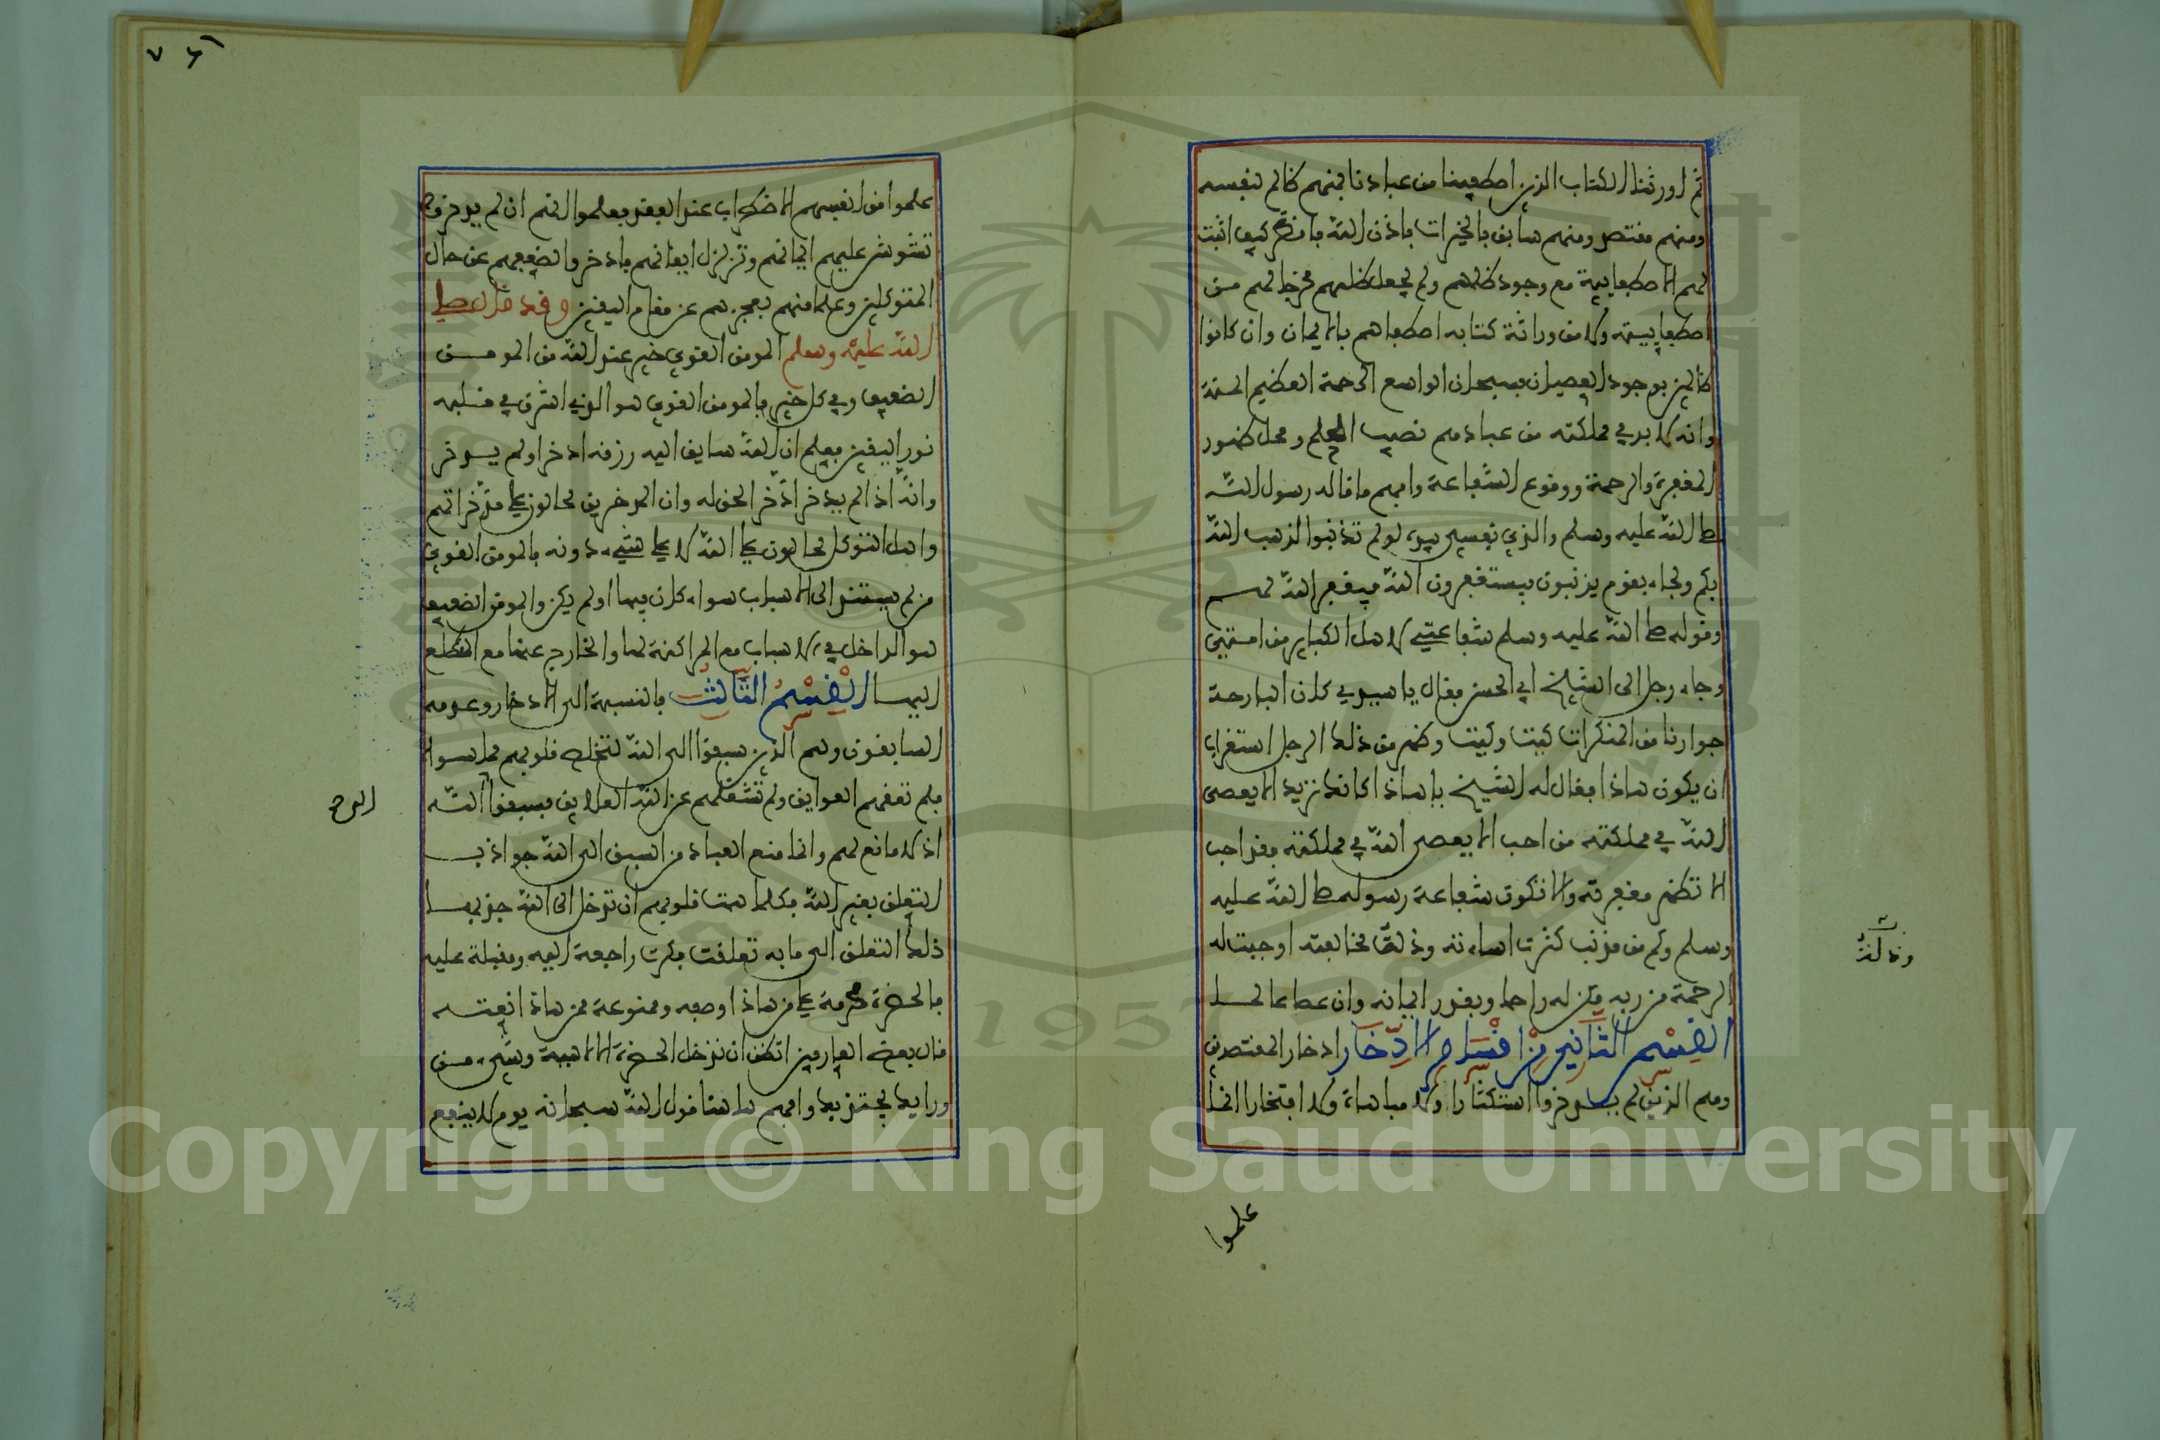 ثم اورثنا الكتاب الذين اصطفينا من عبادنا فمنهم ظالم لنفسه
ومنهم مقتصد ومنهم سابق بالخيرات باذن الله فانظر كيف اثبت
لهم الاصطفايية مع وجود ظلمهم ولم يجعل ظلمهم مخرجا لهم من
اصطفاييته ولا من وراثة كتابه اصطفاهم بالايمان وان كانوا
ظالمين بوجود العصيان فسبحان الواسع الرحمة العظيم المنة
وانه لا بد في مملكته من عباد هم نصيب الحلم ومحل ظهور
المغفرة والرحمة ووقوع الشفاعة وافهم ما قاله رسول الله
صلى الله عليه وسلم والذي نفسي بيده لو لم تذنبوا لذهب الله
بكم ولجاء بقوم يذنبون فيستغفرون الله فيغفر الله لهم
وقوله صلى الله عليه وسلم شفاعتي لاهل الكباير من امتي
وجاء رجل الى الشيخ ابي الحسن فقال يا سيدي كان البارحة
جوارنا من المنكرات كيت وكيت وظهر من ذلك الرجل استغراب
ان يكون هاذا فقال له الشيخ يا هاذا كانك تريد الا يعصى
الله في مملكته من احب الا يعصى الله في مملكته فقد احب
الا تظهر مغفرته والا تكون شفاعة رسوله صلى الله عليه
وسلم وكم من مذنب كثرت اساءته وذنبه مخالفته اوجبت له
الرحمة من ربه فكن له راحما وبقدر ايمانه وان عصا عالما
القسم الثاني من اقسام الادخار ادخار المقتصدين
وهم الذين لم يدخروا استكثارا ولا مباهاة ولا افتخارا انما
علموا
علموا من انفسهم الاضطراب عند الفقد فعلموا انهم ان لم يدخروا
تشوش عليهم ايمانهم وتزلزل ايقانهم فادخروا لضعفهم عن حال
المتوكلين وعلما منهم بعجزهم عن مقام اليقين وقد قال صلى
الله عليه وسلم المومن القوي خير عند الله من المومن
الضعيف وفي كل خير فالمومن القوي هو الذي اشرق في قلبه
نور اليقين فعلم ان الله سايق اليه رزقه ادخر او لم يدخر
وانه اذا لم يدخر ادخر الحق له وان المدخرين محالون على مدخراتهم
واهل التوكل محالون على الله لا على شيء دونه فالمومن القوي
من لم يستند الى الاسباب سواء كان فيها او لم يكن والمومن الضعيف
هو الداخل في الاسباب مع المراكنة لها والخارج عنها مع التطلع
اليها القسم الثالث بالنسبة الى الادخار وعدمه
السابقون وهم الذين سبقوا الى الله لتخلص قلوبهم مما سواه
فلم تعقهم العوايق ولم تشغلهم عن الله العلايق فسبقوا الى الله
اذ لا مانع لهم وانما منع العباد من السبق الى الله جواذب
التعلق بغير الله فكلما همت قلوبهم ان ترحل الى الله جذبها
ذلك التعلق الى ما به تعلقت فكرت راجعة اليه ومقبلة عليه
فالحضرة محرمة على من هاذا وصفه وممنوعة ممن هاذا نعته
قال بعض العارفين اتظن ان تدخل الحضرة الالاهية وشيء من
ورايك يجتذبك وافهم هاهنا قول الله سبحانه يوم لا ينفع